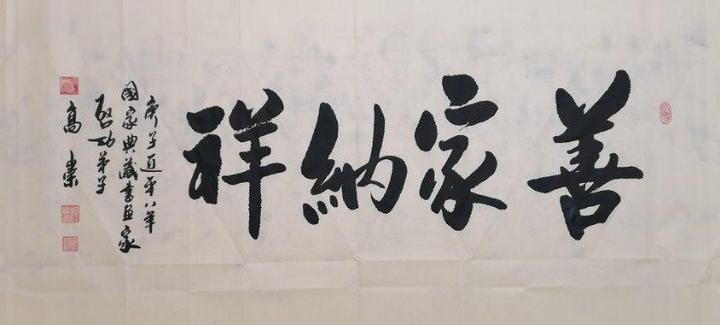 善家納祥
庚子近平八年
國家典藏書画家
啓功弟子
高